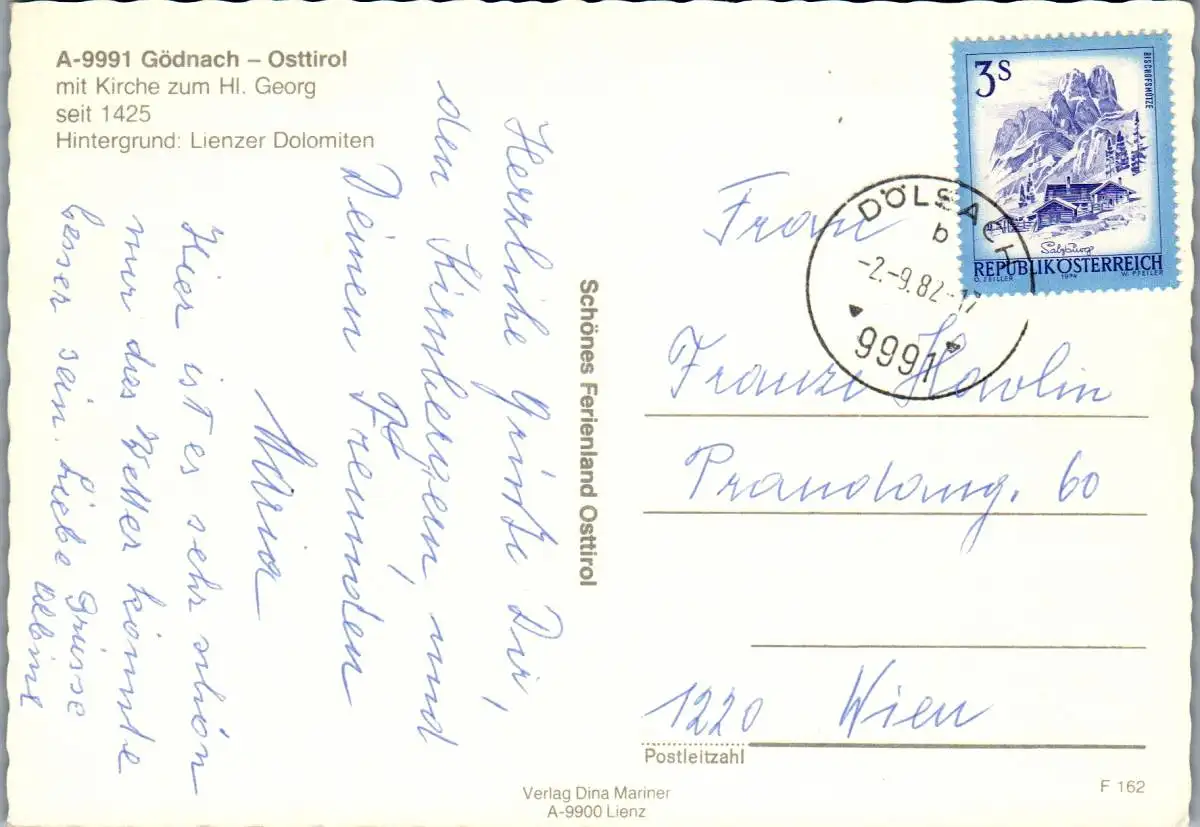 A-9991 Gödnach – Osttirol
mit Kirche zum Hl. Georg
seit 1425
Hintergrund: Lienzer Dolomiten
Herrliche Grüße Dir,
den Kirnbergen und
Deinen Freunden
Maria
Hier ist es sehr schön
nur das Wetter könnte
besser sein. Liebe Grüsse
Albine
Schönes Ferienland Osttirol
3 S
BISCHOFSMÜTZE
Salzburg
REPUBLIK ÖSTERREICH
O. ZEILLER 1974 W. PFEILER
DÖLSACH
b
-2.-9.82-17
9991
Frau
Franzi Havlin
Prandaug. 60
1220 Wien
Postleitzahl
Verlag Dina Mariner
A-9900 Lienz
F 162